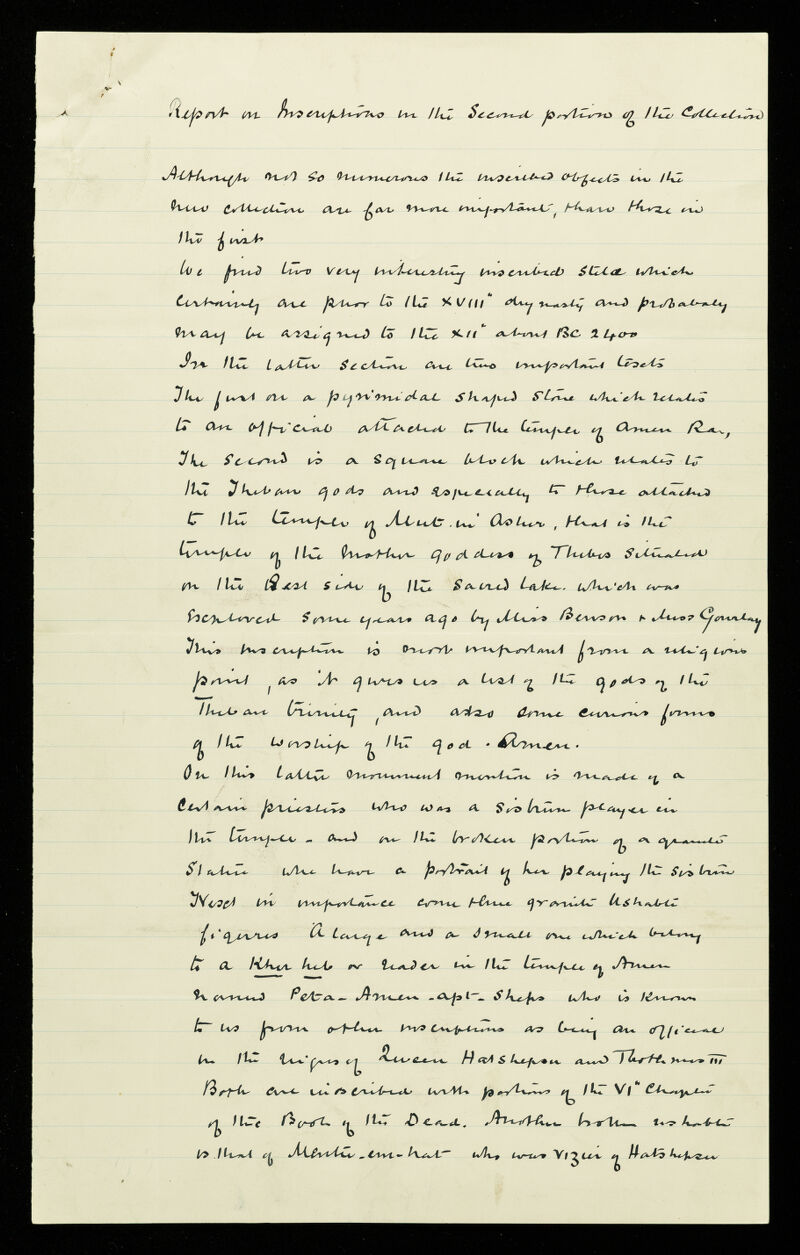 Report on Inscriptions in the Second portion of the Collection
Although not so numerous the inscribed objects in the
new collection are far more important, than those in
the first
We find two very interesting inscribed Stelæ which
Certainly are prior to the XVIIIth dynasty and probably
may be assigned to the XIIth about BC 2400
In the latter section are two important texts
The first on a pyrimidal shaped Stone which relates
to an official attached to the temple of Amen Ra,
The Second is a Square block which relates to
the Theban gods and especially to those attached
to the temple of Mut-in Asher, that is the
temple of the Mother goddess of Thebes Situated
on the West side of the Sacred lake which was
explored some years ago by Miss Benson & Miss Gourlay
This inscription is most important from a religious
point, as it gives us a list of the gods of the
Theban trinity, and also some curious forms
of the worship of the god Amen.
On this latter monument mention is made of a
Certain priestess who was a Sistrum player in
the temple - and on the broken portion of a granite
Statue who have a portrait of her playing the Sistrum
Next in importance come three granite Ushabti
figures A large and a small one which belong
to a Kher heb or reader in the temple of Amen
named Peta-Amen-apt-Sheps who is Known
to us from other inscriptions as being an official
in the reigns of Queen Hatshepsu and Thothmes III
Both are inscribed with portions of the VIth Chapter
of the Book of the Dead. Another broken ushabti
is that of Mentu-em-hat who was Vizier of Hatshepsu